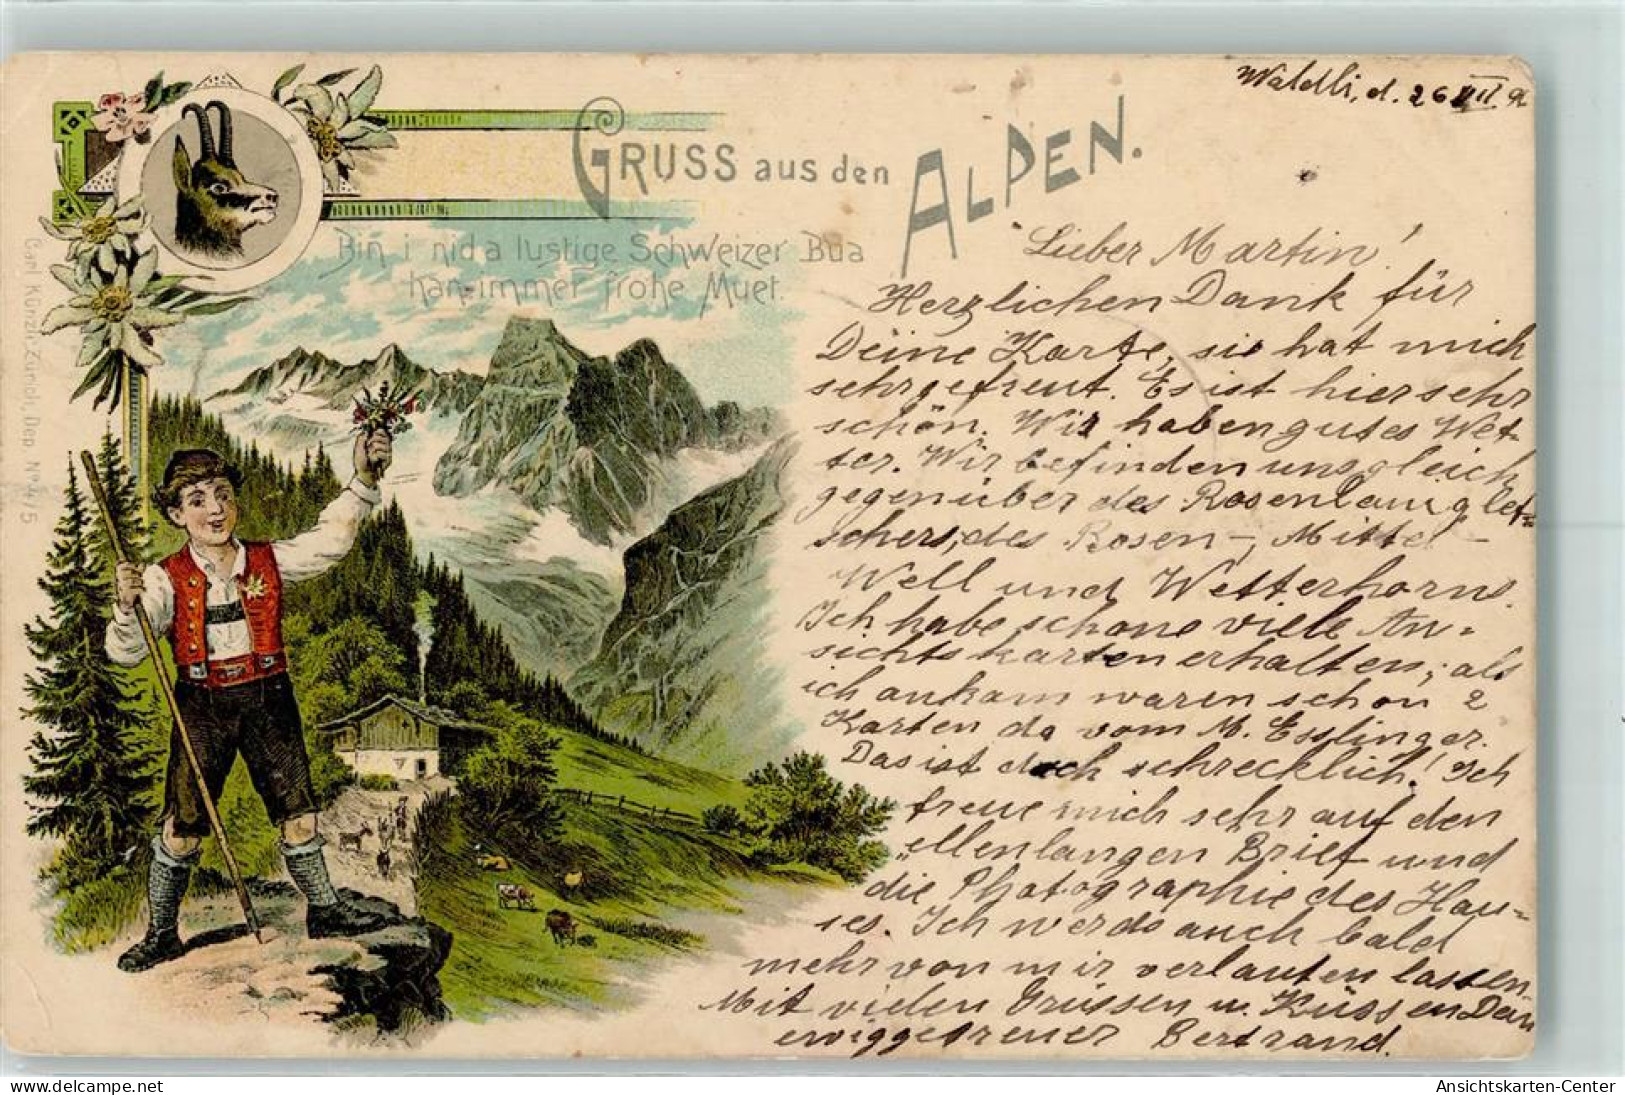 Waldli, d. 26 VII. 9
GRUSS aus den ALPEN.
Bin i nid a lustige Schweizer Bua
han immer frohe Muet.
Carl Künzli, Zürich, Dep. No 4/5
Lieber Martin!
Herzlichen Dank für
Deine Karte, sie hat mich
sehr gefreut. Es ist hier sehr
schön. Wir haben gutes Wet-
ter. Wir befinden uns gleich
gegenüber des Rosenlauiglet-
schers, des Rosen-, Mittel-
Well und Wetterhorns.
Ich habe schone viele An-
sichtskarten erhalten; als
ich ankam waren schon 2
Karten da vom M. Esslinger.
Das ist doch schrecklich! Ich
freue mich sehr auf den
„ellenlangen Brief und
die Photographie des Hau-
ses. Ich werde auch bald
mehr von mir verlauten lassen.
Mit vielen Grüssen u. Küssen Dein
ewiggetreuer Bertrand.
Ansichtskarten-Center